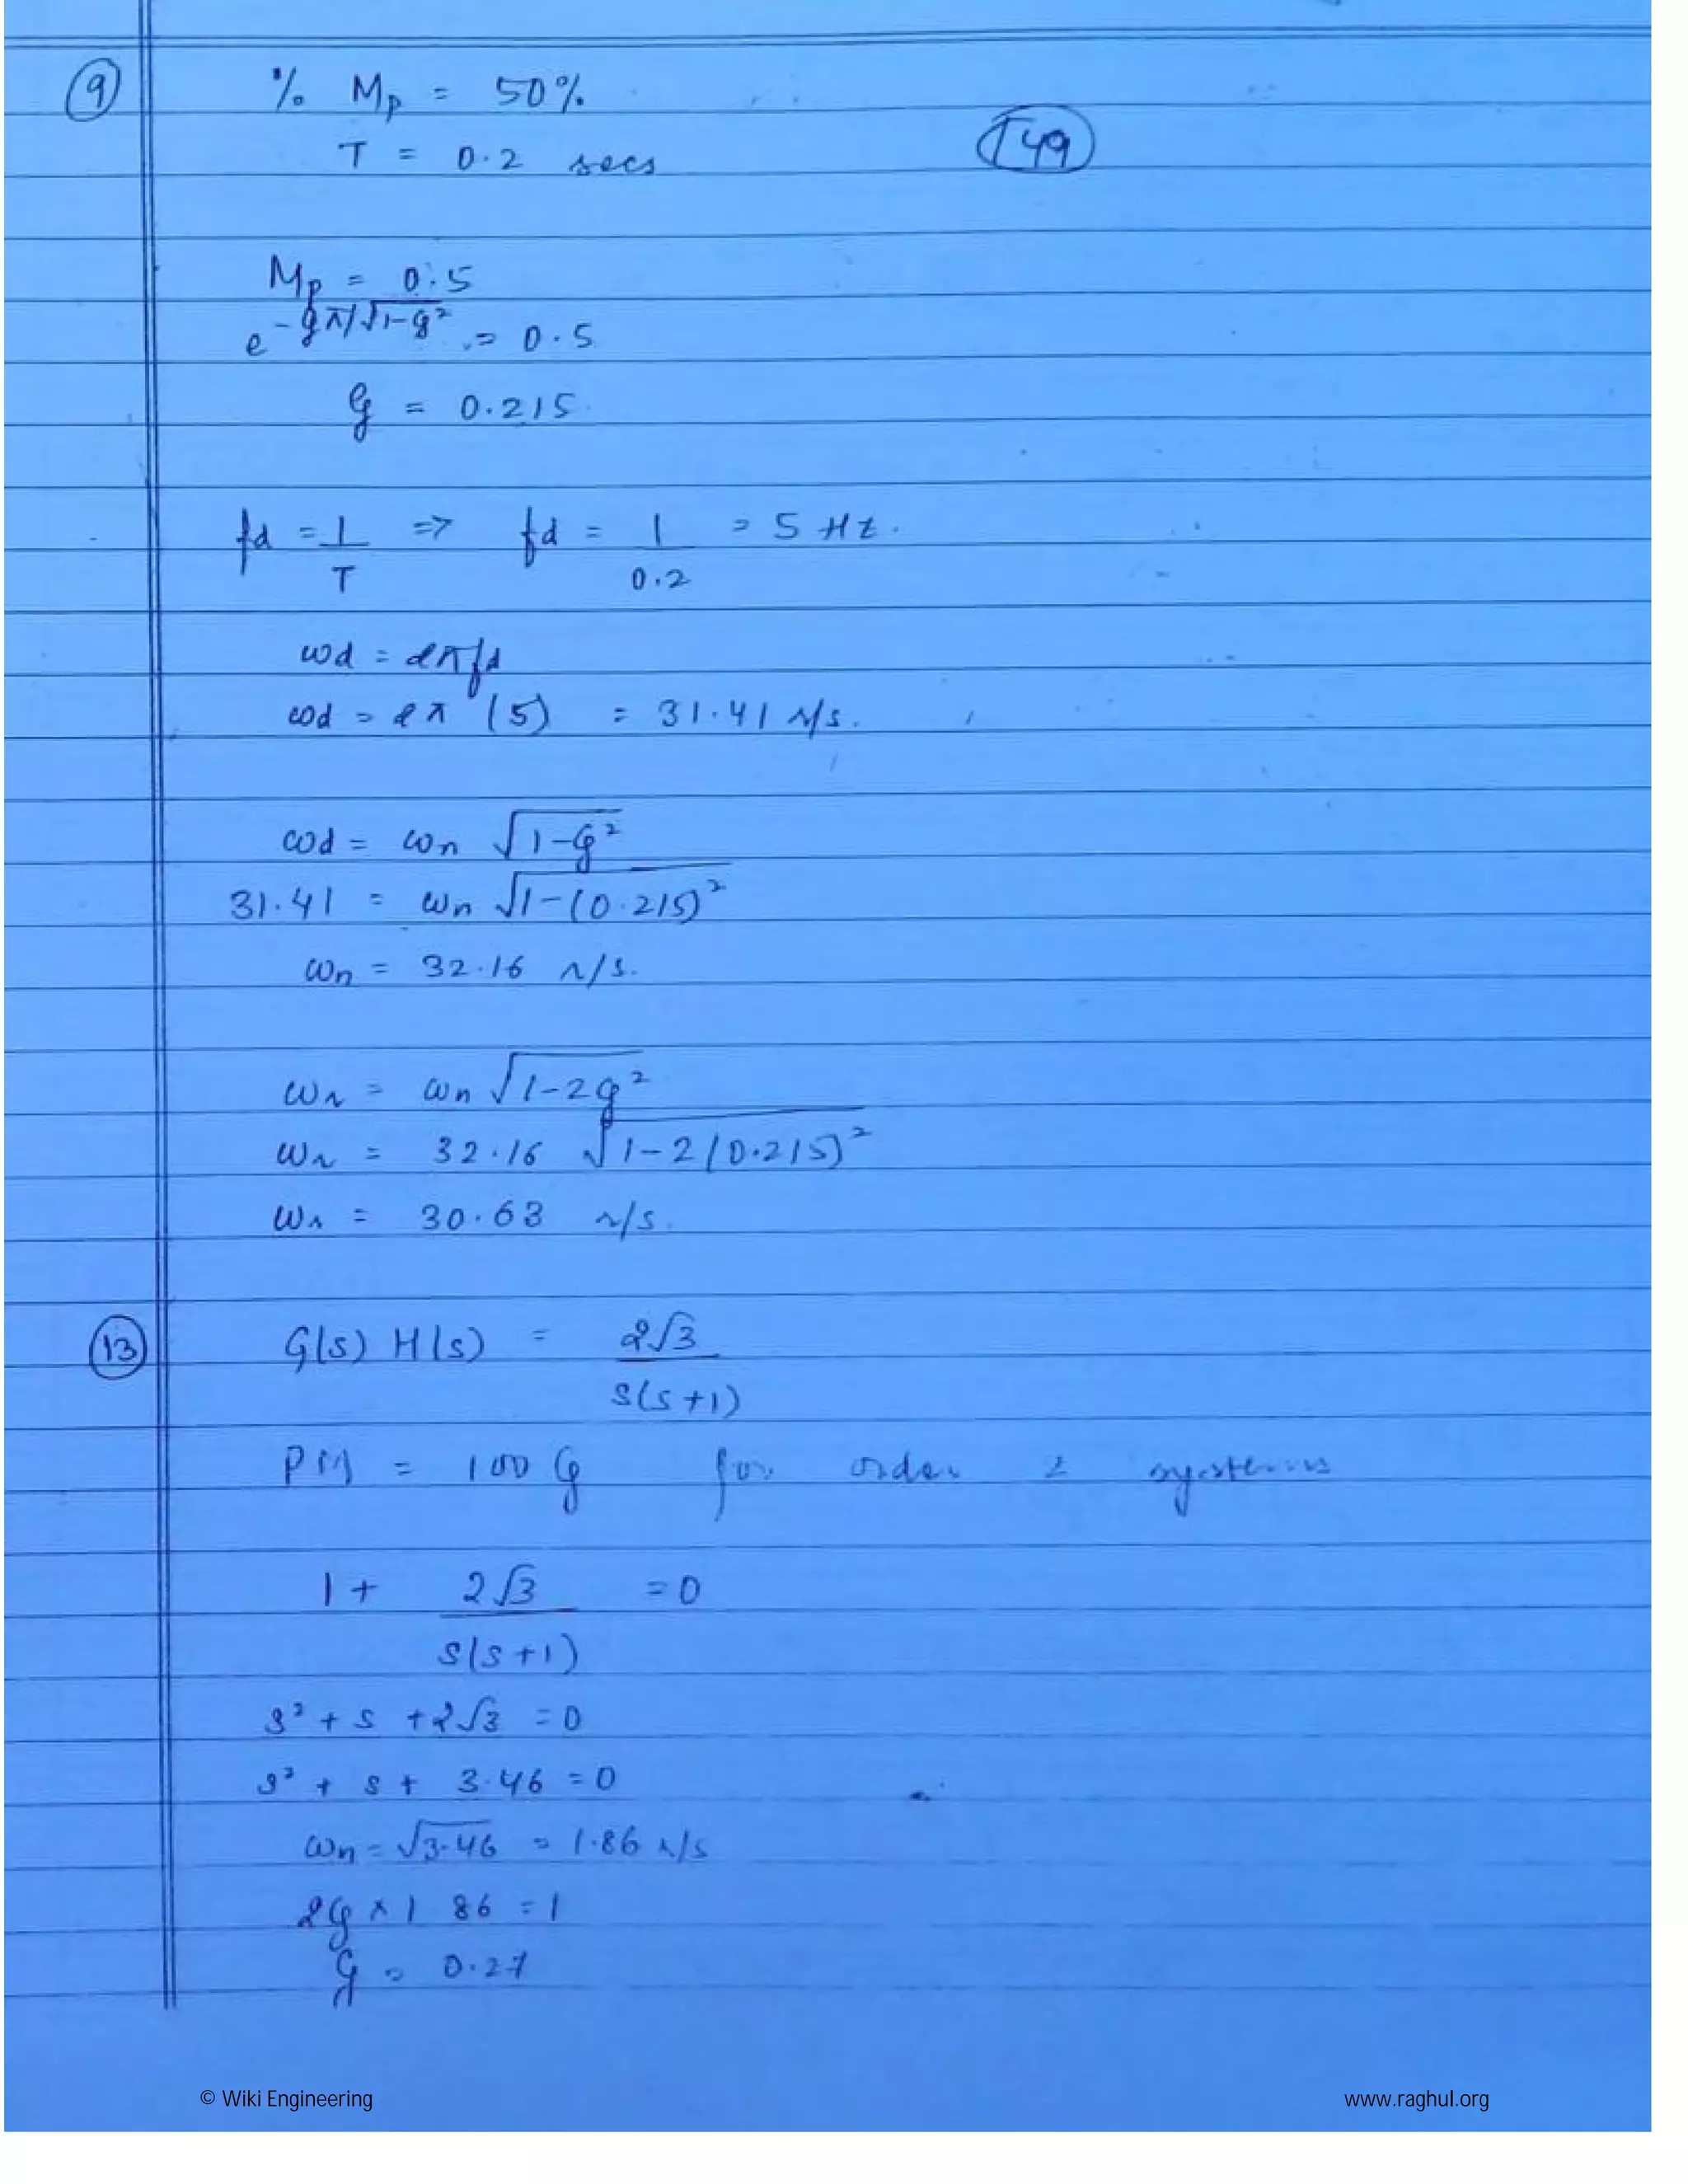 9
% Mp = 50%
T = 0.2 secs
T49
Mp = 0.5
e^(-ξπ/√(1-ξ²)) = 0.5
ξ = 0.215
fd = 1/T => fd = 1/0.2 = 5 Hz.
ωd = 2πfd
ωd = 2π (5) = 31.41 r/s.
ωd = ωn √(1-ξ²)
31.41 = ωn √(1-(0.215)²)
ωn = 32.16 r/s.
ωr = ωn √(1-2ξ²)
ωr = 32.16 √(1-2(0.215)²)
ωr = 30.63 r/s.
13
G(s) H(s) = 2√3/s(s+1)
PM = 100 ξ for order 2 systems
1 + 2√3/s(s+1) = 0
s² + s + 2√3 = 0
s² + s + 3.46 = 0
ωn = √3.46 = 1.86 r/s
2ξ × 1.86 = 1
ξ = 0.27
© Wiki Engineering
www.raghul.org